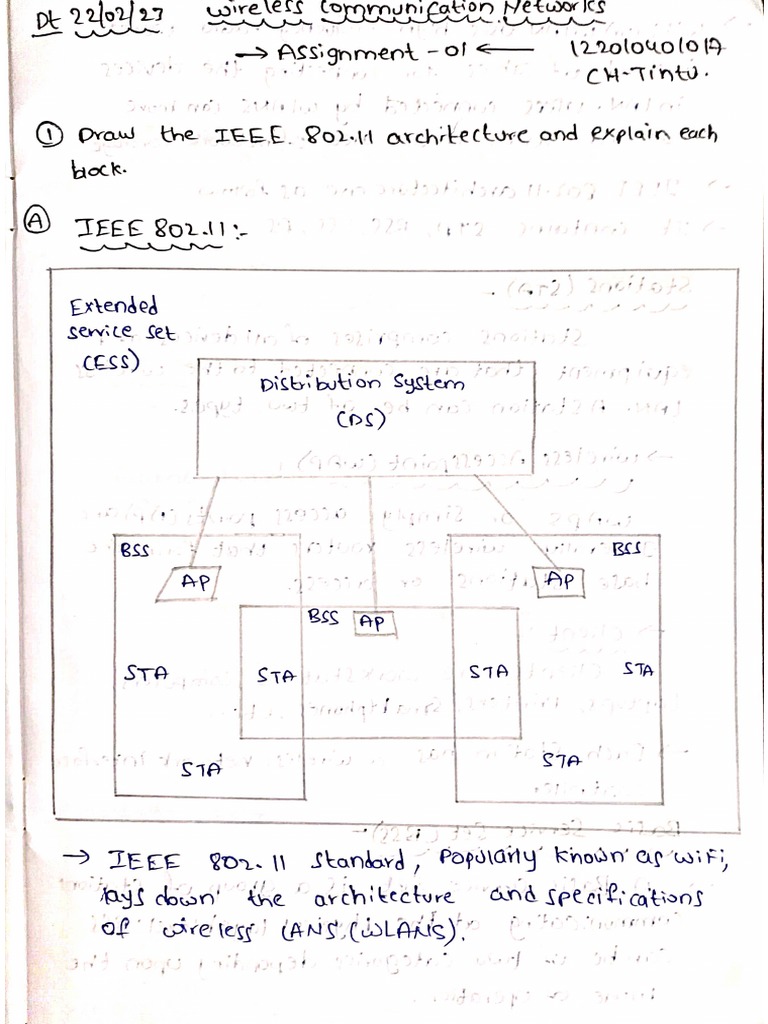 Dt 22/02/23 Wireless Communication Networks
→ Assignment-01 ← 122010401017
CH-Tintu.
① Draw the IEEE 802.11 architecture and explain each
block.
Ⓐ IEEE 802.11:-
Extended
service set
(ESS)
Distribution System
(DS)
BSS
AP
STA
STA
STA
BSS AP
STA
BSS
AP
STA
STA
→ IEEE 802.11 standard, Popularly known as WiFi,
lays down the architecture and specifications
of wireless LANS (WLANS).